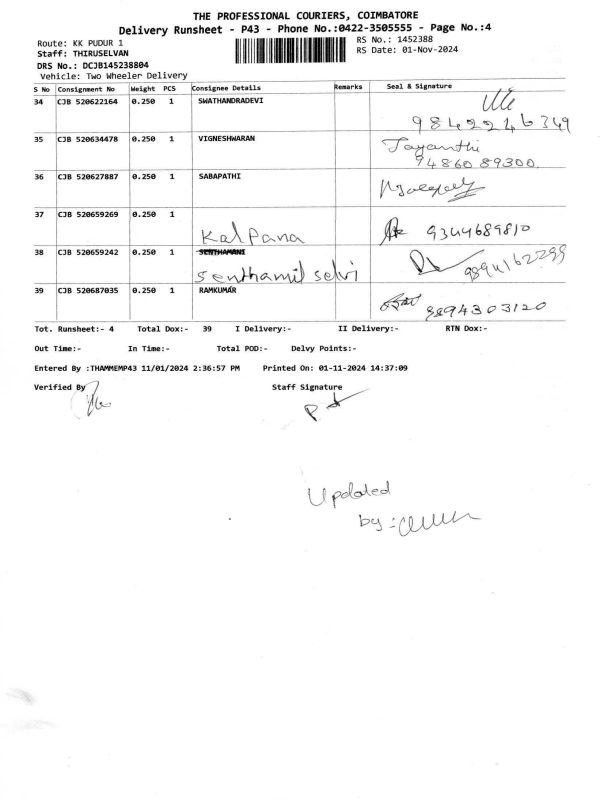 THE PROFESSIONAL COURIERS, COIMBATORE
Delivery Runsheet - P43 - Phone No.:0422-3505555 - Page No.:4
Route: KK PUDUR 1
RS No.: 1452388
Staff: THIRUSELVAN
RS Date: 01-Nov-2024
DRS No.: DCJB145238804
Vehicle: Two Wheeler Delivery
S No Consignment No Weight PCS Consignee Details Remarks Seal & Signature
34 CJB 520622164 0.250 1 SWATHANDRADEVI
9842246349
35 CJB 520634478 0.250 1 VIGNESHWARAN Jayanthi
9486089300.
36 CJB 520627887 0.250 1 SABAPATHI
37 CJB 520659269 0.250 1
Kalpana 9344689810
38 CJB 520659242 0.250 1 SENTHAMANI
Senthamil selvi 9894162299
39 CJB 520687035 0.250 1 RAMKUMAR
9894303120
Tot. Runsheet:- 4 Total Dox:- 39 I Delivery:- II Delivery:- RTN Dox:-
Out Time:- In Time:- Total POD:- Delvy Points:-
Entered By :THAMMEMP43 11/01/2024 2:36:57 PM Printed On: 01-11-2024 14:37:09
Verified By Staff Signature
Updated
by:-